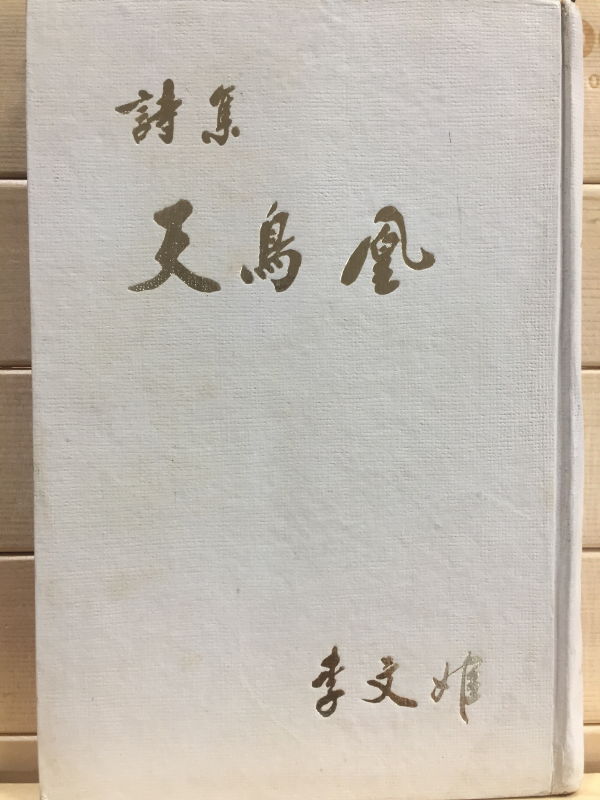 詩集
天鳥凰
李文